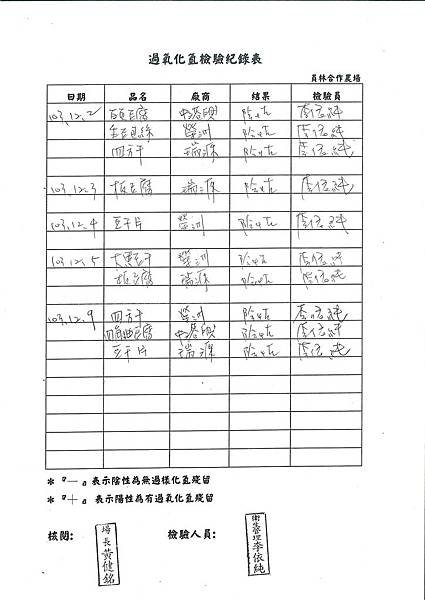 過氧化氫檢驗紀錄表
員林合作農場
日期 品名 廠商 結果 檢驗員
103.12.2 百頁豆腐 中港興 陰性 李依純
榮洲 陰性 李依純
四方干 瑞源 陰性 李依純
103.12.3 板豆腐 瑞源 陰性 李依純
103.12.4 豆干片 榮洲 陰性 李依純
103.12.5 大黑豆干 榮洲 陰性 李依純
板豆腐 瑞源 陰性 李依純
103.12.9 四方干 榮洲 陰性 李依純
豆腐 中港興 陰性 李依純
豆干片 瑞源 陰性 李依純
* 『—』表示陰性為無過樣化氫殘留
* 『+』表示陽性為有過氧化氫殘留
核閱: 場長黃健銘 檢驗人員: 衛管管理李依純